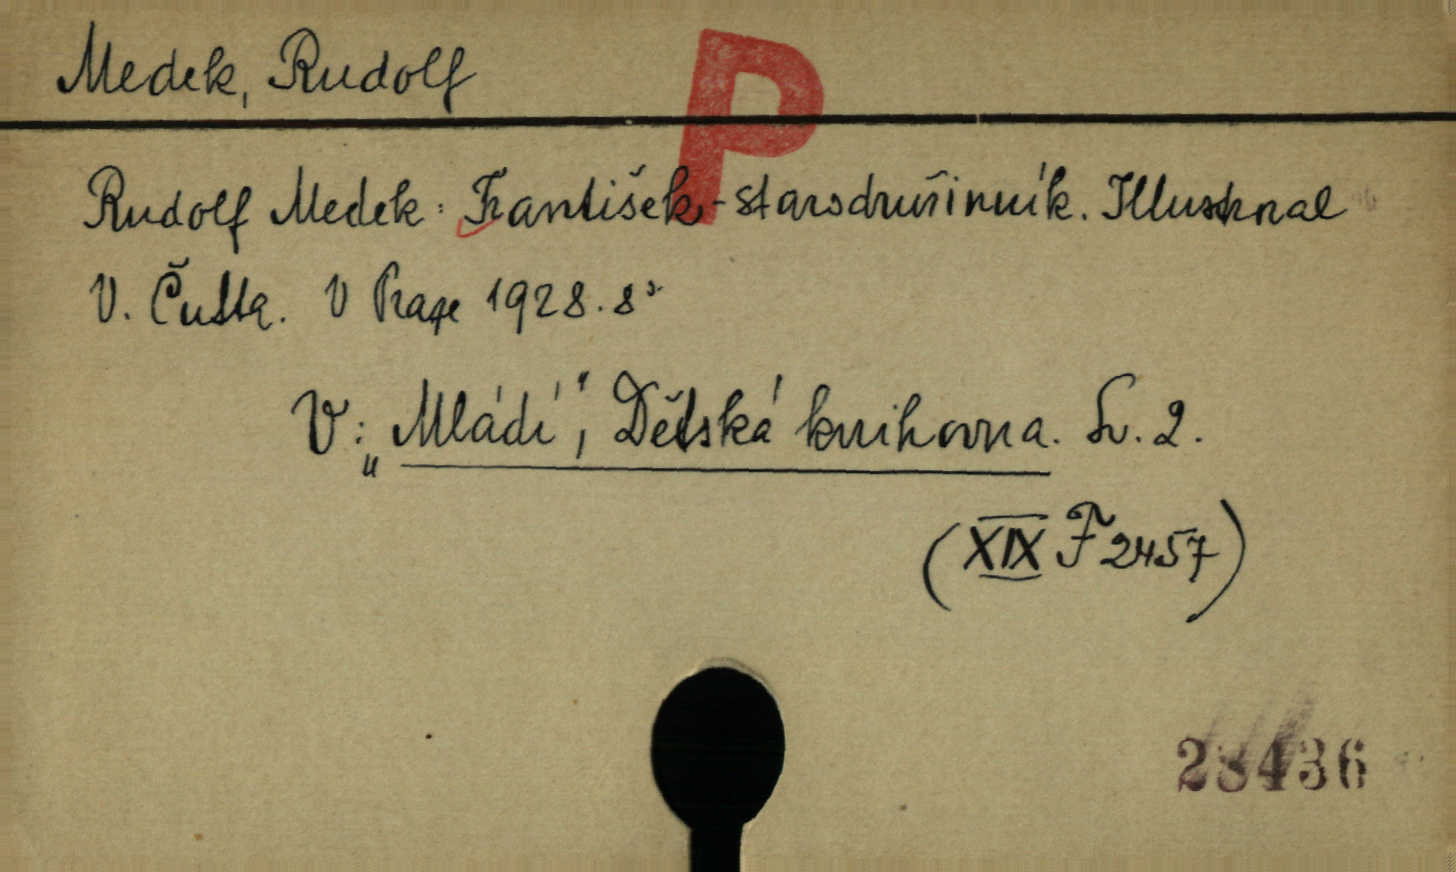 Medek, Rudolf
P
Rudolf Medek: František-starodružinník. Illustroval
V. Čutta. V Praze 1928. 8°
V: „Mládí", Dětská knihovna. Sv. 2.
(XIX F 2457)
28436